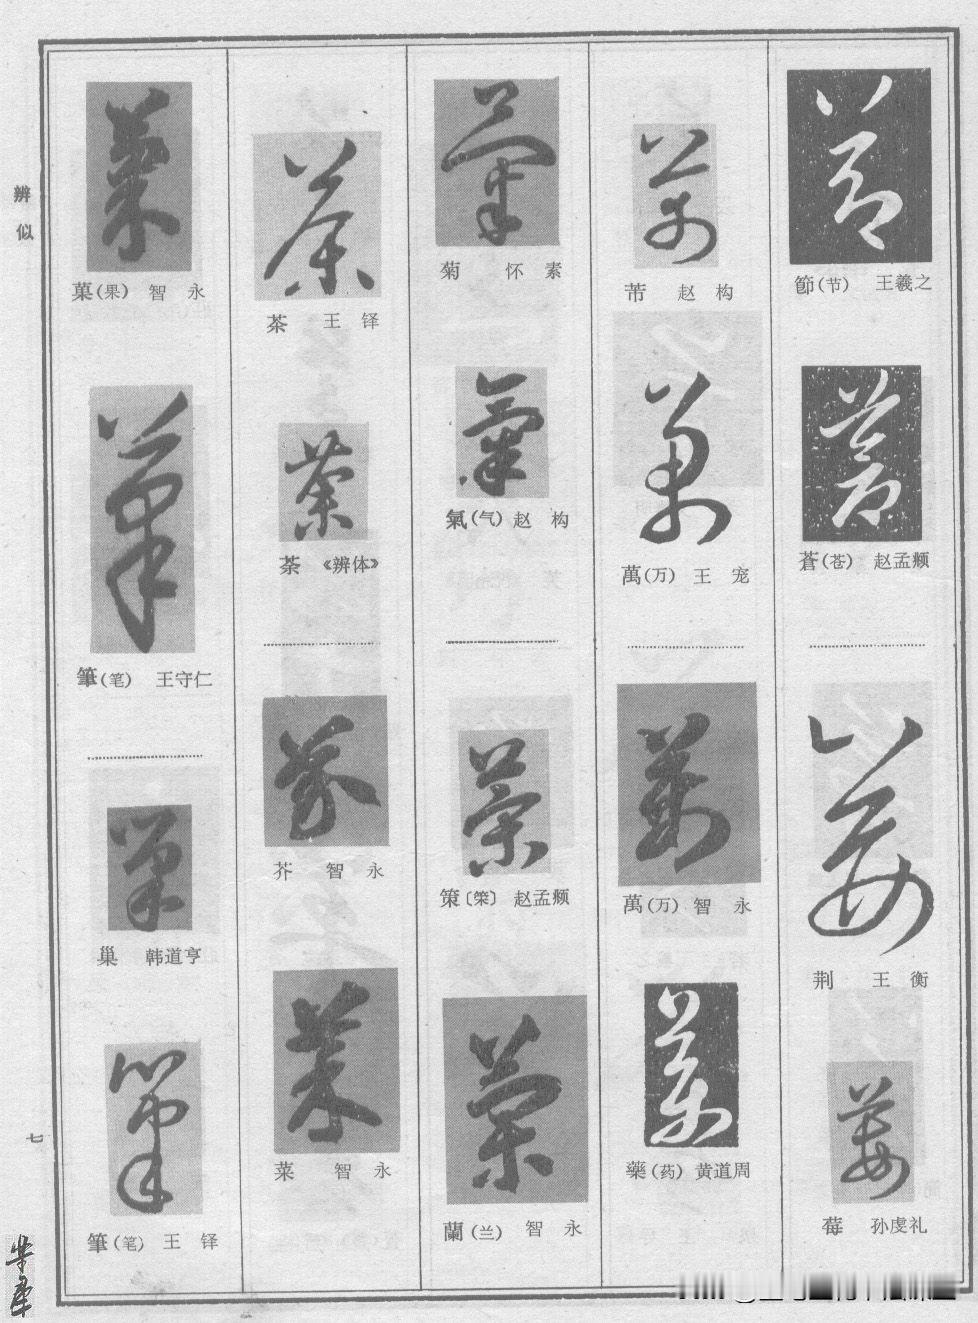 節(节) 王羲之
蒼(苍) 赵孟頫
荆 王衡
莓 孙虔礼
芾 赵构
萬(万) 王宠
萬(万) 智永
藥(药) 黄道周
菊 怀素
氣(气) 赵构
策〔筞〕 赵孟頫
蘭(兰) 智永
茶 王铎
荼 《辨体》
芥 智永
菜 智永
菓(果) 智永
筆(笔) 王守仁
巢 韩道亨
筆(笔) 王铎
辨似
七